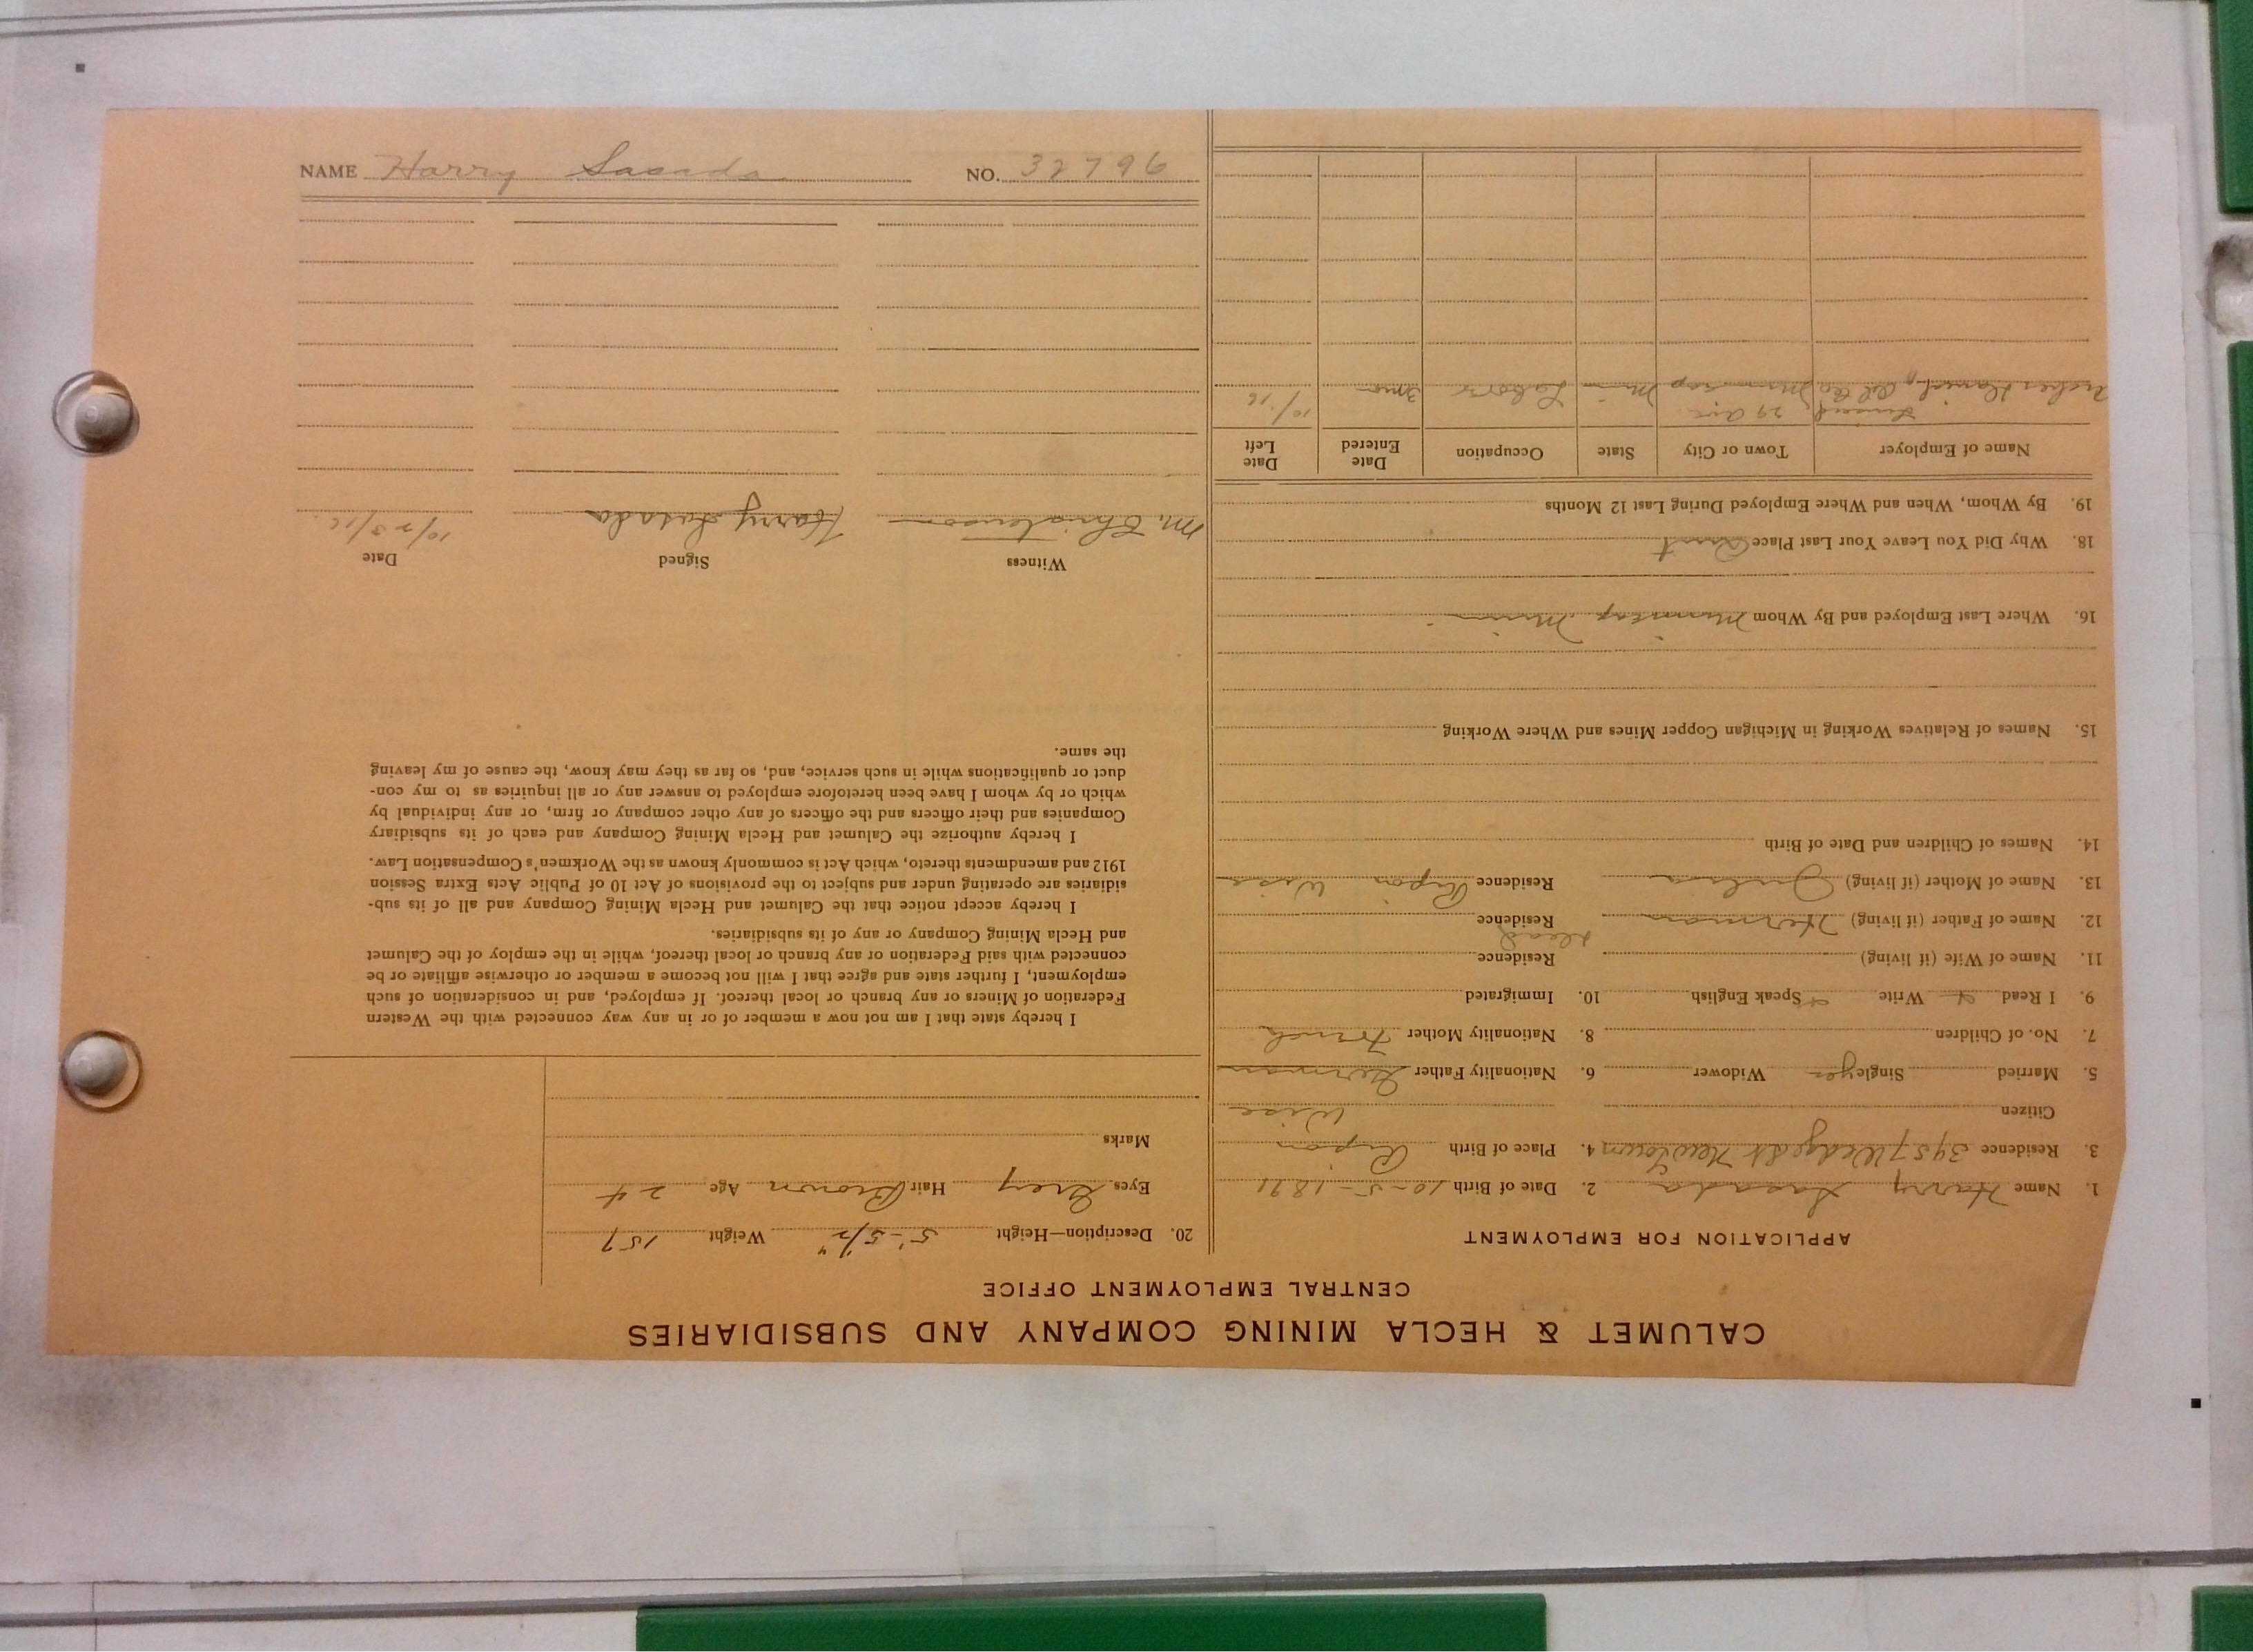 CALUMET & HECLA MINING COMPANY AND SUBSIDIARIES
CENTRAL EMPLOYMENT OFFICE
APPLICATION FOR EMPLOYMENT
1. Name Harry Sasada 2. Date of Birth 10-5-1891
3. Residence 3957 Wedge St 4. Place of Birth Ripon
Citizen Wisc
5. Married Single yes Widower 6. Nationality Father German
7. No. of Children 8. Nationality Mother French
9. I Read Write Speak English 10. Immigrated
11. Name of Wife (if living) Residence
12. Name of Father (if living) Herman dead Residence
13. Name of Mother (if living) Julia Residence Ripon Wisc
14. Names of Children and Date of Birth
15. Names of Relatives Working in Michigan Copper Mines and Where Working
16. Where Last Employed and By Whom
18. Why Did You Leave Your Last Place Quit
19. By Whom, When and Where Employed During Last 12 Months
Name of Employer Town or City State Occupation Date Entered Date Left
29 Ave
Labor 3 mon 10/16
20. Description—Height 5'-5 1/2" Weight 157
Eyes Grey Hair Brown Age 24
Marks
I hereby state that I am not now a member of or in any way connected with the Western
Federation of Miners or any branch or local thereof. If employed, and in consideration of such
employment, I further state and agree that I will not become a member or otherwise affiliate or be
connected with said Federation or any branch or local thereof, while in the employ of the Calumet
and Hecla Mining Company or any of its subsidiaries.
I hereby accept notice that the Calumet and Hecla Mining Company and all of its sub-
sidiaries are operating under and subject to the provisions of Act 10 of Public Acts Extra Session
1912 and amendments thereto, which Act is commonly known as the Workmen's Compensation Law.
I hereby authorize the Calumet and Hecla Mining Company and each of its subsidiary
Companies and their officers and the officers of any other company or firm, or any individual by
which or by whom I have been heretofore employed to answer any or all inquiries as to my con-
duct or qualifications while in such service, and, so far as they may know, the cause of my leaving
the same.
Witness Signed Date
M. Christenson Harry Sasada 10/23/16.
NAME Harry Sasada NO. 32796